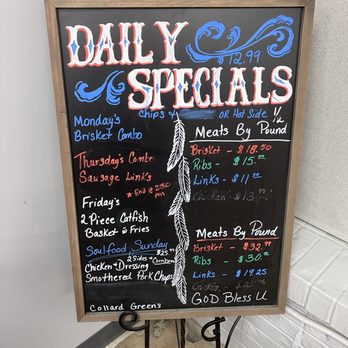 DAILY
$12.99
SPECIALS
Chips & OR Hot Side 1/2
Monday's
Brisket Combo
Meats By Pound
Brisket - $18.50
Ribs - $15.00
Links - $11.00
Chicken - $13.99
Thursday's Combo
Sausage Links
* End @ 2:30 pm
Friday's
2 Piece Catfish
Basket & Fries
Soulfood Sunday $25.99
2 Sides & Cornbread
Chicken & Dressing
Smothered Pork Chops
Collard Greens
Meats By Pound
Brisket - $32.99
Ribs - $30.00
Links - $19.25
Chicken -
GOD Bless U